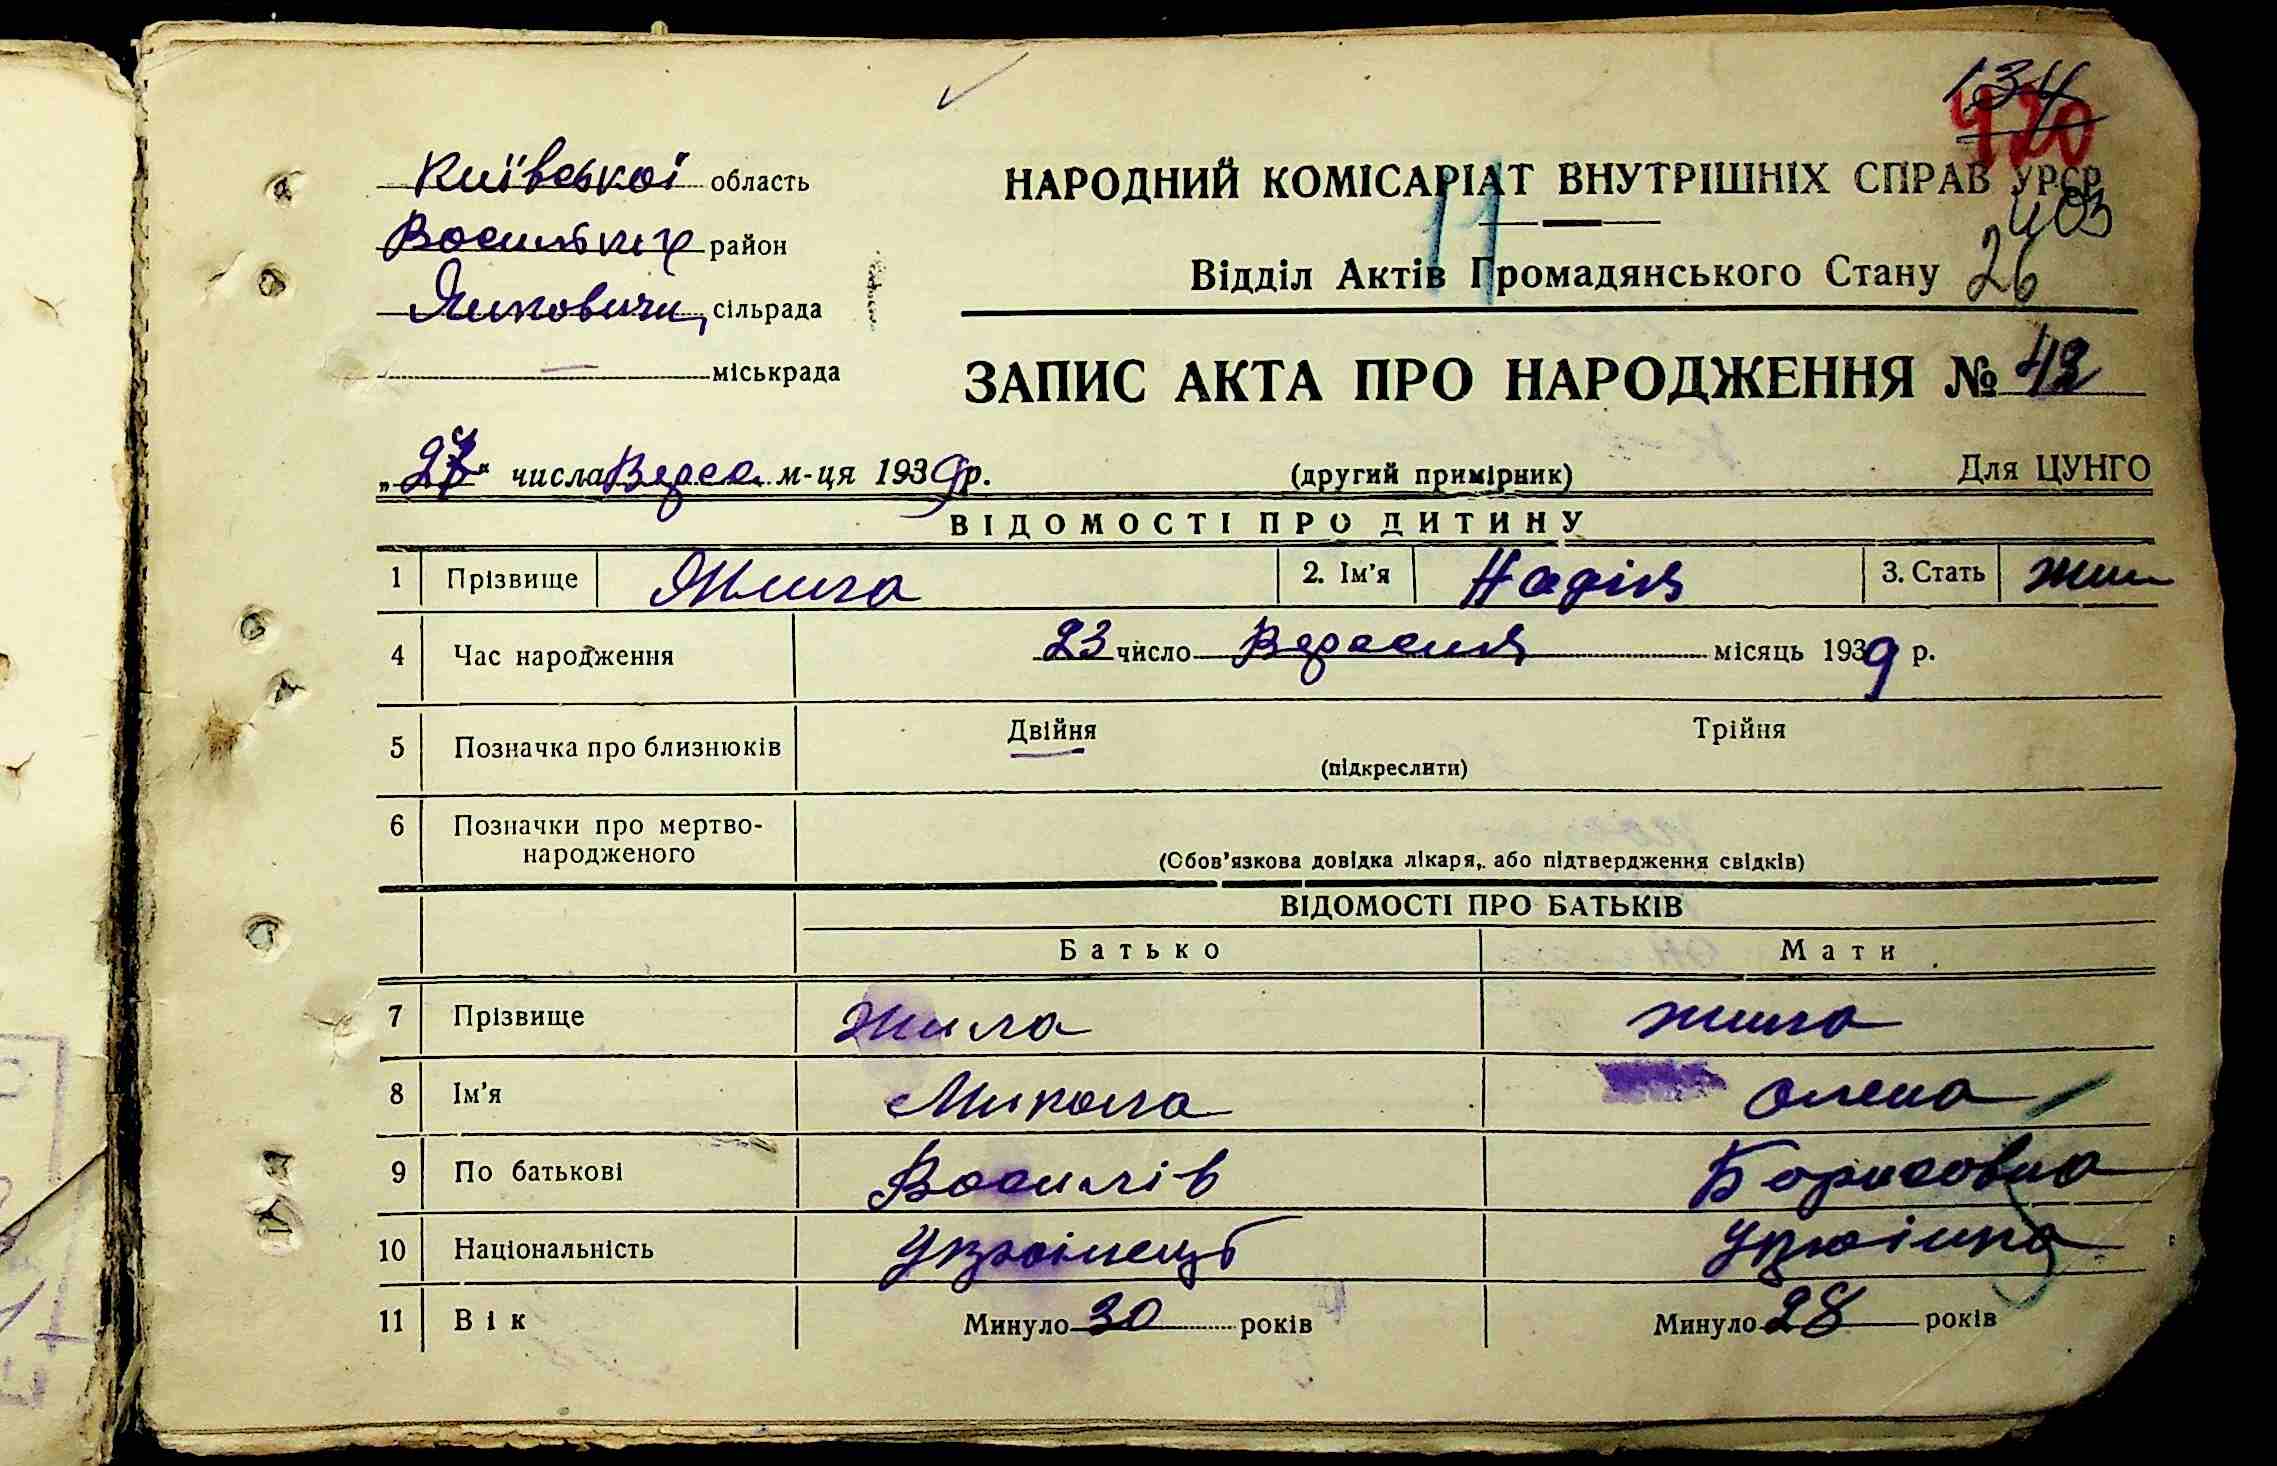 134
420
Київської область
403
НАРОДНИЙ КОМІСАРІАТ ВНУТРІШНІХ СПРАВ УРСР
район
11
26
Відділ Актів Громадянського Стану
сільрада
міськрада
ЗАПИС АКТА ПРО НАРОДЖЕННЯ №
„27“ числа Верес. м-ця 1939р.
(другий примірник)
Для ЦУНГО
ВІДОМОСТІ ПРО ДИТИНУ
1 Прізвище Жила 2. Ім'я Надія 3. Стать жін
4 Час народження 23 число Вересня місяць 1939 р.
5 Позначка про близнюків Двійня Трійня
(підкреслити)
6 Позначки про мертво-
народженого
(Обов'язкова довідка лікаря, або підтвердження свідків)
ВІДОМОСТІ ПРО БАТЬКІВ
Батько Мати
7 Прізвище Жила Жила
8 Ім'я Микола Олена
9 По батькові Василів Борисовна
10 Національність Українець Українка
11 Вік Минуло 30 років Минуло 28 років